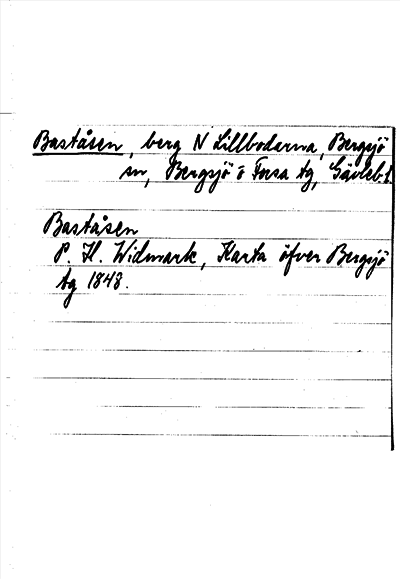 Baståsen, berg N Lillbodarna, Bergsjö
sn, Bergsjö o Forsa tg, Gävleb.l.
Baståsen
P. H. Widmark, Karta öfver Bergsjö
tg 1848.